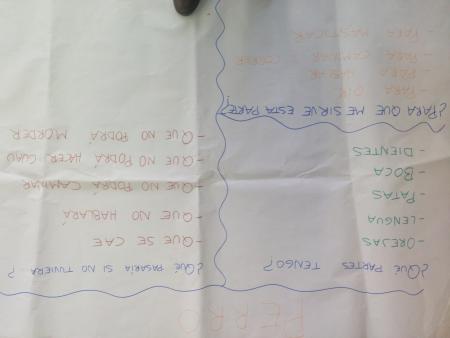 PERRO
¿QUÉ PARTES TENGO?
- OREJAS
- LENGUA
- PATAS
- BOCA
- DIENTES
¿PARA QUE ME SIRVE ESTA PARTE?
- PARA OIR
- PARA HABLAR
- PARA CAMINAR, CORRER
- PARA MASTICAR
¿QUÉ PASARÍA SI NO TUVIERA?
- QUE SE CAE
- QUE NO HABLARÁ
- QUE NO PODRÁ CAMINAR
- QUE NO PODRÁ HACER GUAU
- QUE NO PODRÁ MORDER